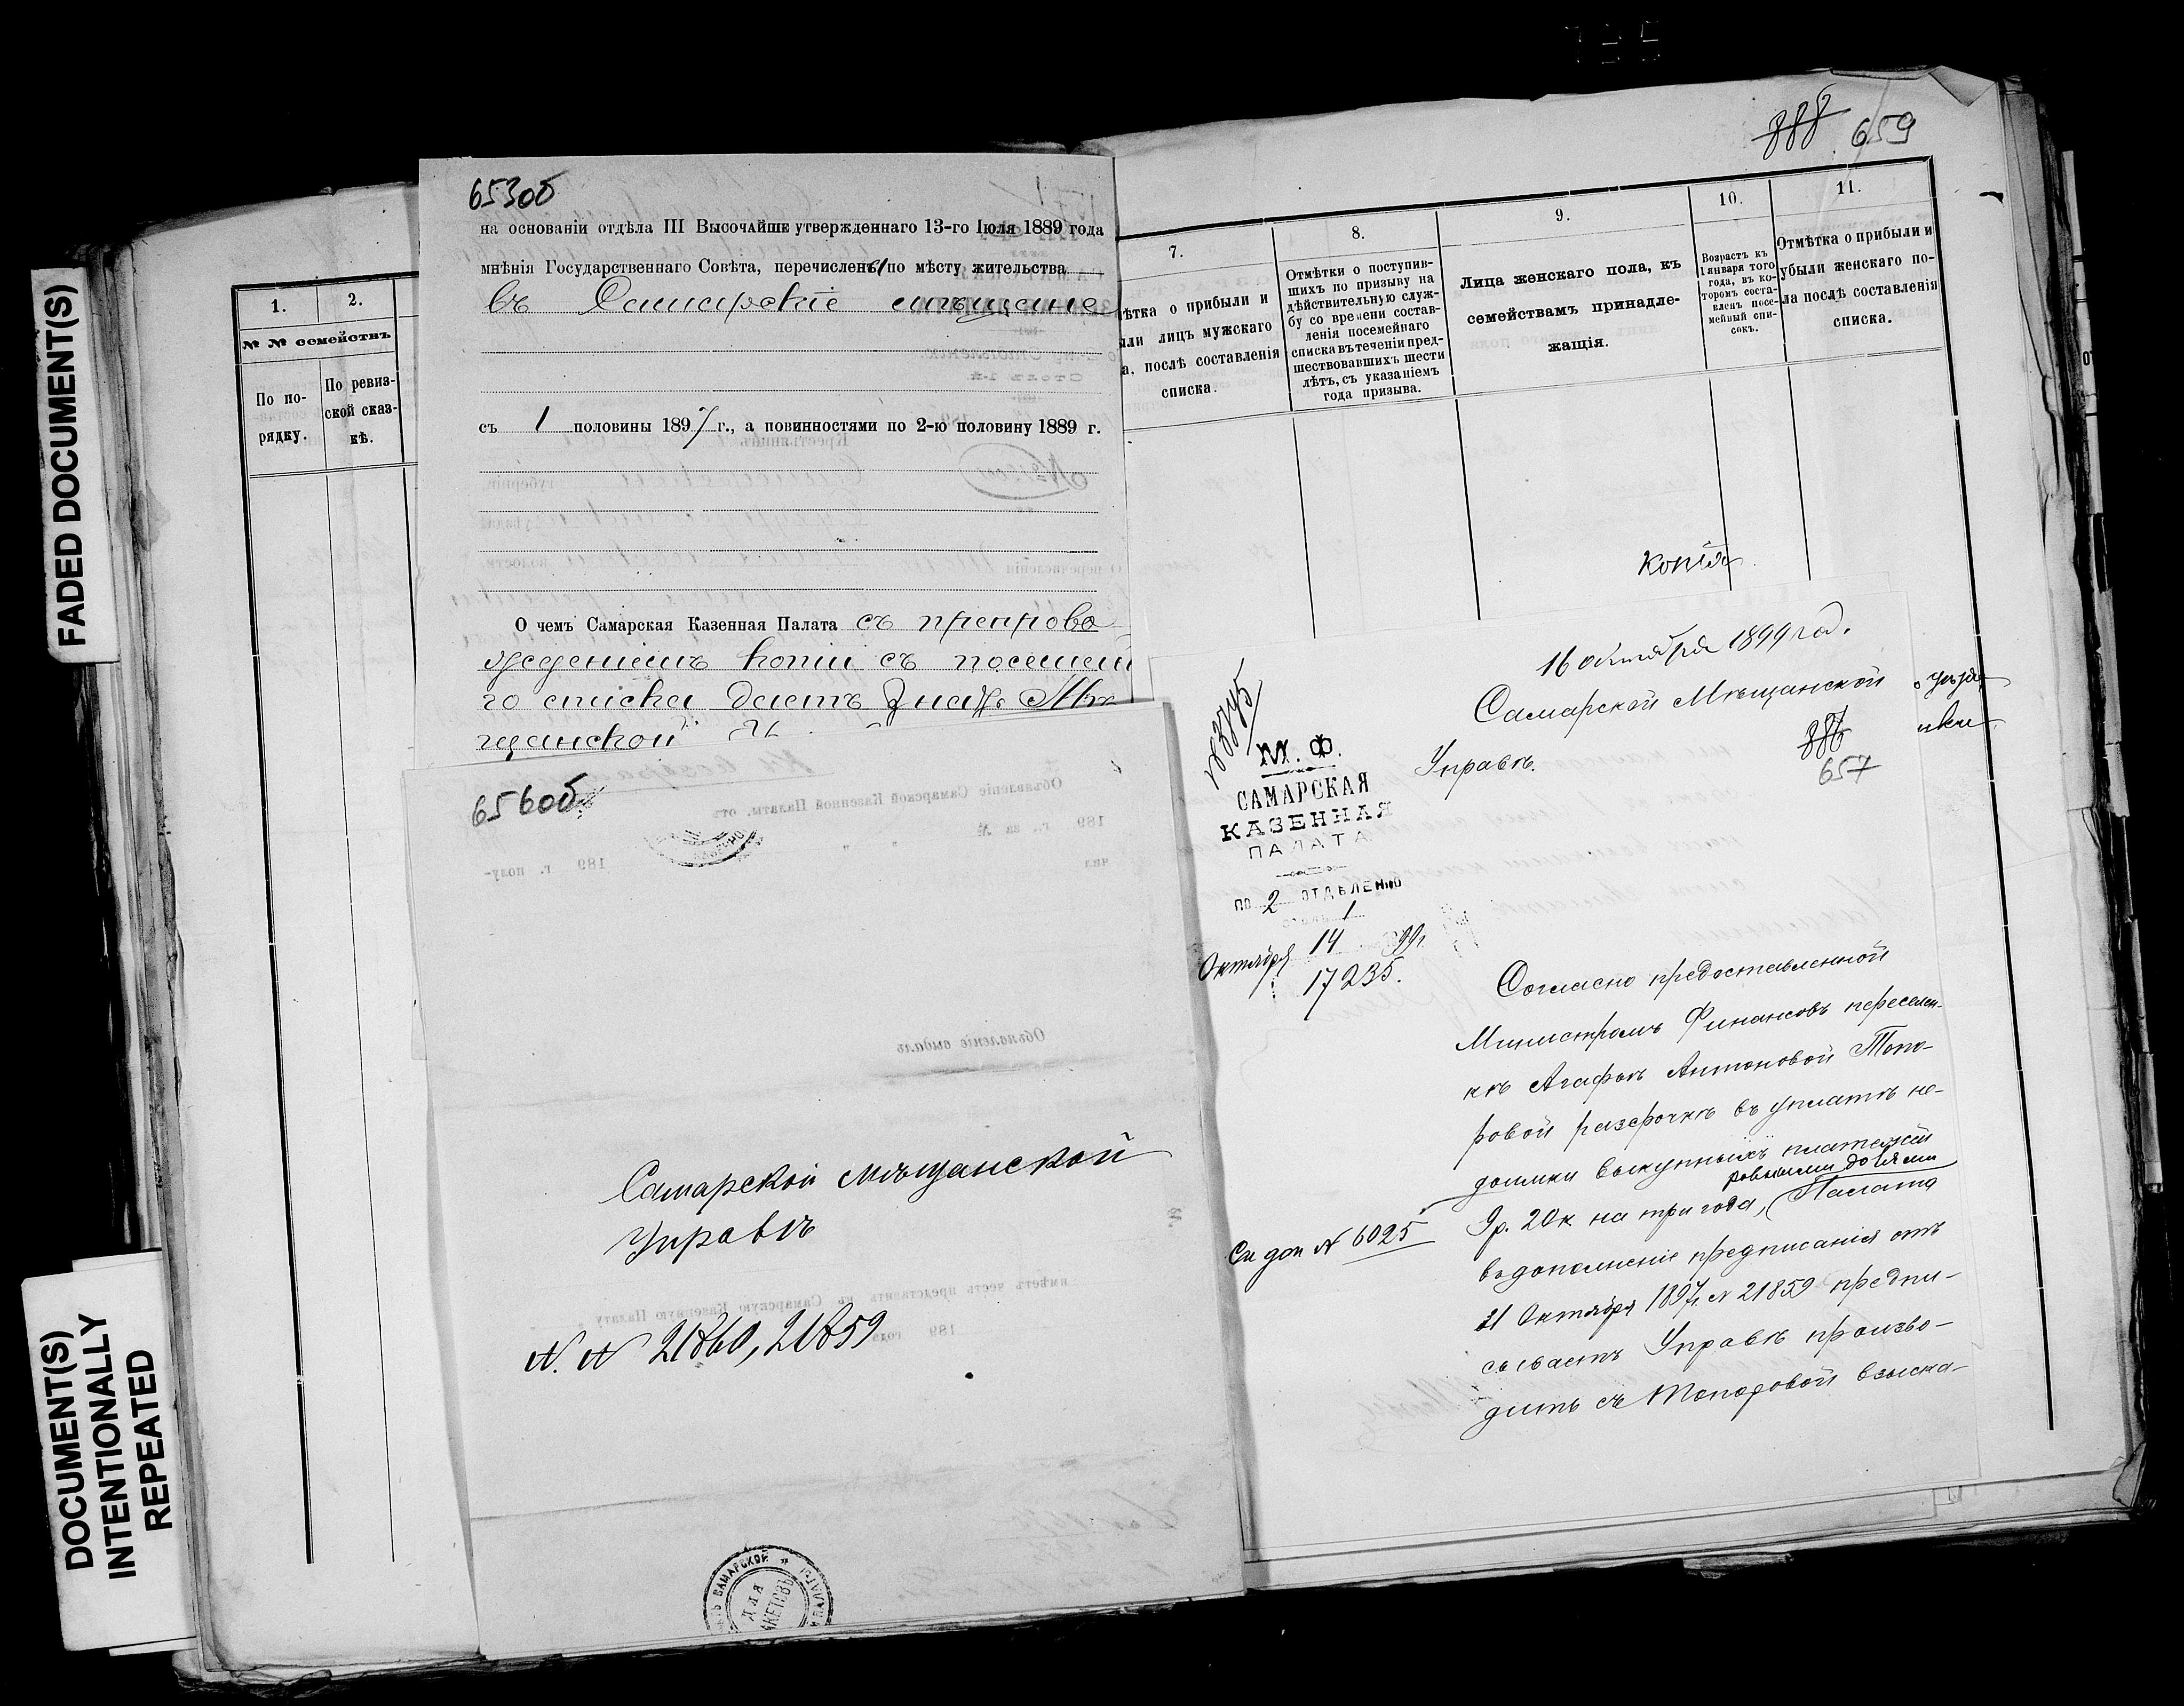 FADED DOCUMENT(S)
DOCUMENT(S)
INTENTIONALLY
REPEATED
1.
2.
№ № семействъ
По по-
рядку.
По ревиз-
ской сказ-
кѣ.
653об
на основаніи отдѣла III Высочайше утвержденнаго 13-го Іюля 1889 года
мнѣнія Государственнаго Совѣта, перечислены по мѣсту жительства
въ Самарскіе мѣщане
съ 1 половины 1897 г., а повинностями по 2-ю половину 1889 г.
О чемъ Самарская Казенная Палата съ препрово
жденіемъ копіи съ посемей
го списка даетъ знать Мѣ
щанской
656об
Самарской мѣщанской
Управѣ
N. N 21860, 21859
САМАРСКОЙ
ДЛЯ
ПАКЕТОВЪ
888 659
7.
ѣтка о прибыли и
ыли лицъ мужскаго
а, послѣ составленія
списка.
8.
Отмѣтки о поступив-
шихъ по призыву на
дѣйствительную служ-
бу со времени состав-
ленія посемейнаго
списка въ теченіи пред-
шествовавшихъ шести
лѣтъ, съ указаніемъ
года призыва.
9.
Лица женскаго пола, къ
семействамъ принадле-
жащія.
10.
Возрастъ къ
1 января того
года, въ ко-
торомъ соста-
вленъ посе-
мейный спи-
сокъ.
11.
Отмѣтка о прибыли и
убыли женскаго по-
ла послѣ составленія
списка.
Копія
16 октября 1899 год.
Самарской Мѣщанской
Управѣ.
886
657
М. Ф.
САМАРСКАЯ
КАЗЕННАЯ
ПАЛАТА
ПО 2 ОТДѢЛЕНІЮ
1
Октября 14 99 г.
17235.
Согласно предоставленной
Министромъ Финансовъ переселен-
кѣ Агафьѣ Антоновой Топо-
ровой разсрочкѣ въ уплатѣ не-
доимки выкупныхъ платежей
равными долями
9 р. 20 к на три года, Палата
въ дополненіе предписанія отъ
21 Октября 1897 г. N 21859 предпи-
сываетъ Управѣ произво-
дить съ Топоровой взыска-
См доп N 6025